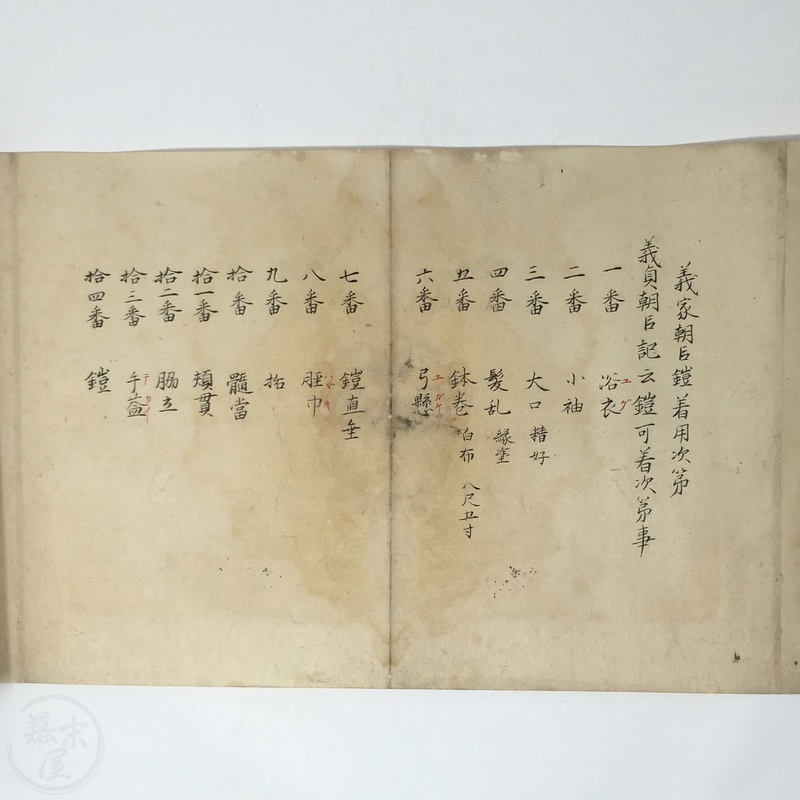 義家朝臣鎧着用次第
義貞朝臣記云鎧可着次第事
一番 浴衣 ユグ
二番 小袖
三番 大口 精好
四番 髪乱 緑塗
五番 鉢巻 白布 八尺五寸
六番 弓懸 ユガケ
七番 鎧直垂
八番 脛巾 ハヾキ
九番
拾番 髓當
拾一番 頬貫
拾二番 脇立
拾三番 手蓋
拾四番 鎧
幕末屋